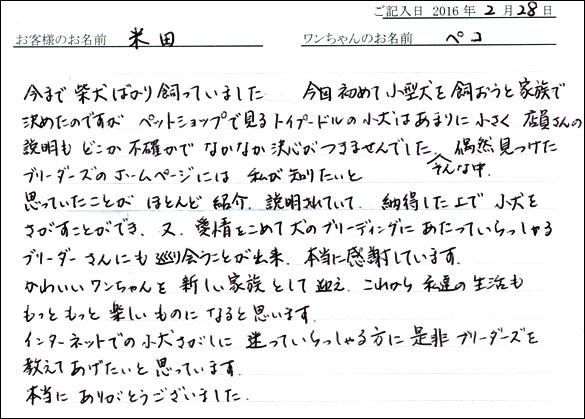 ご記入日 2016年 2月 28日
お客様のお名前 米田 ワンちゃんのお名前 ペコ
今まで 柴犬ばかり飼っていました 今回初めて小型犬を飼おうと家族で
決めたのですが ペットショップで見るトイプードルの小犬はあまりに小さく 店員さんの
説明も どこか不確かで なかなか決心がつきませんでした。そんな中、偶然見つけた
ブリーダーズのホームページには 私が知りたいと
思っていたことが ほとんど紹介、説明されていて、納得した上で小犬を
さがすことができ、又、愛情をこめて犬のブリーディングにあたっていらっしゃる
ブリーダーさんにも巡り会うことが出来、本当に感謝しています。
かわいいワンちゃんを新しい家族として迎え、これから私達の生活も
もっともっと楽しいものになると思います。
インターネットでの小犬さがしに迷っていらっしゃる方に是非ブリーダーズを
教えてあげたいと思っています。
本当に ありがとうございました。